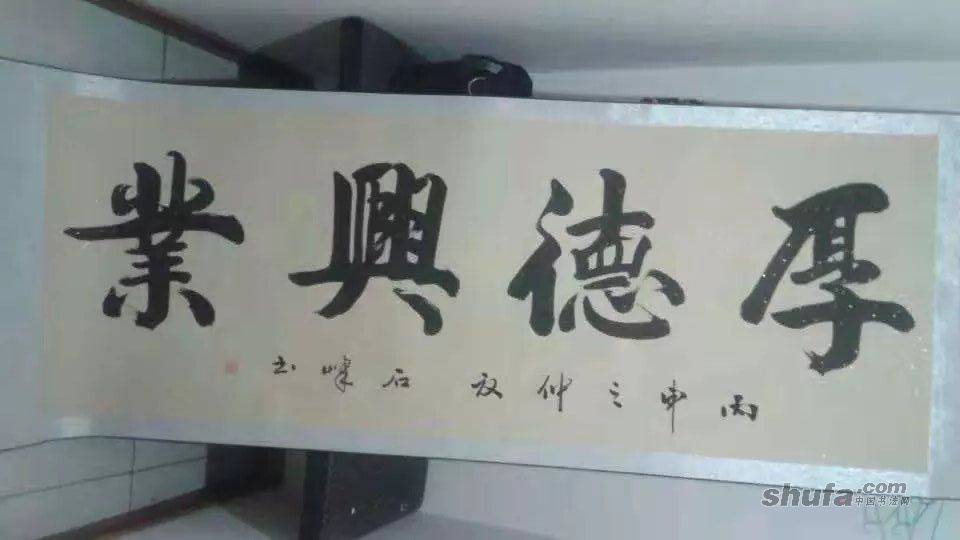 厚德興業
丙申之仲秋 石峰书
shufa.com
中国书法网